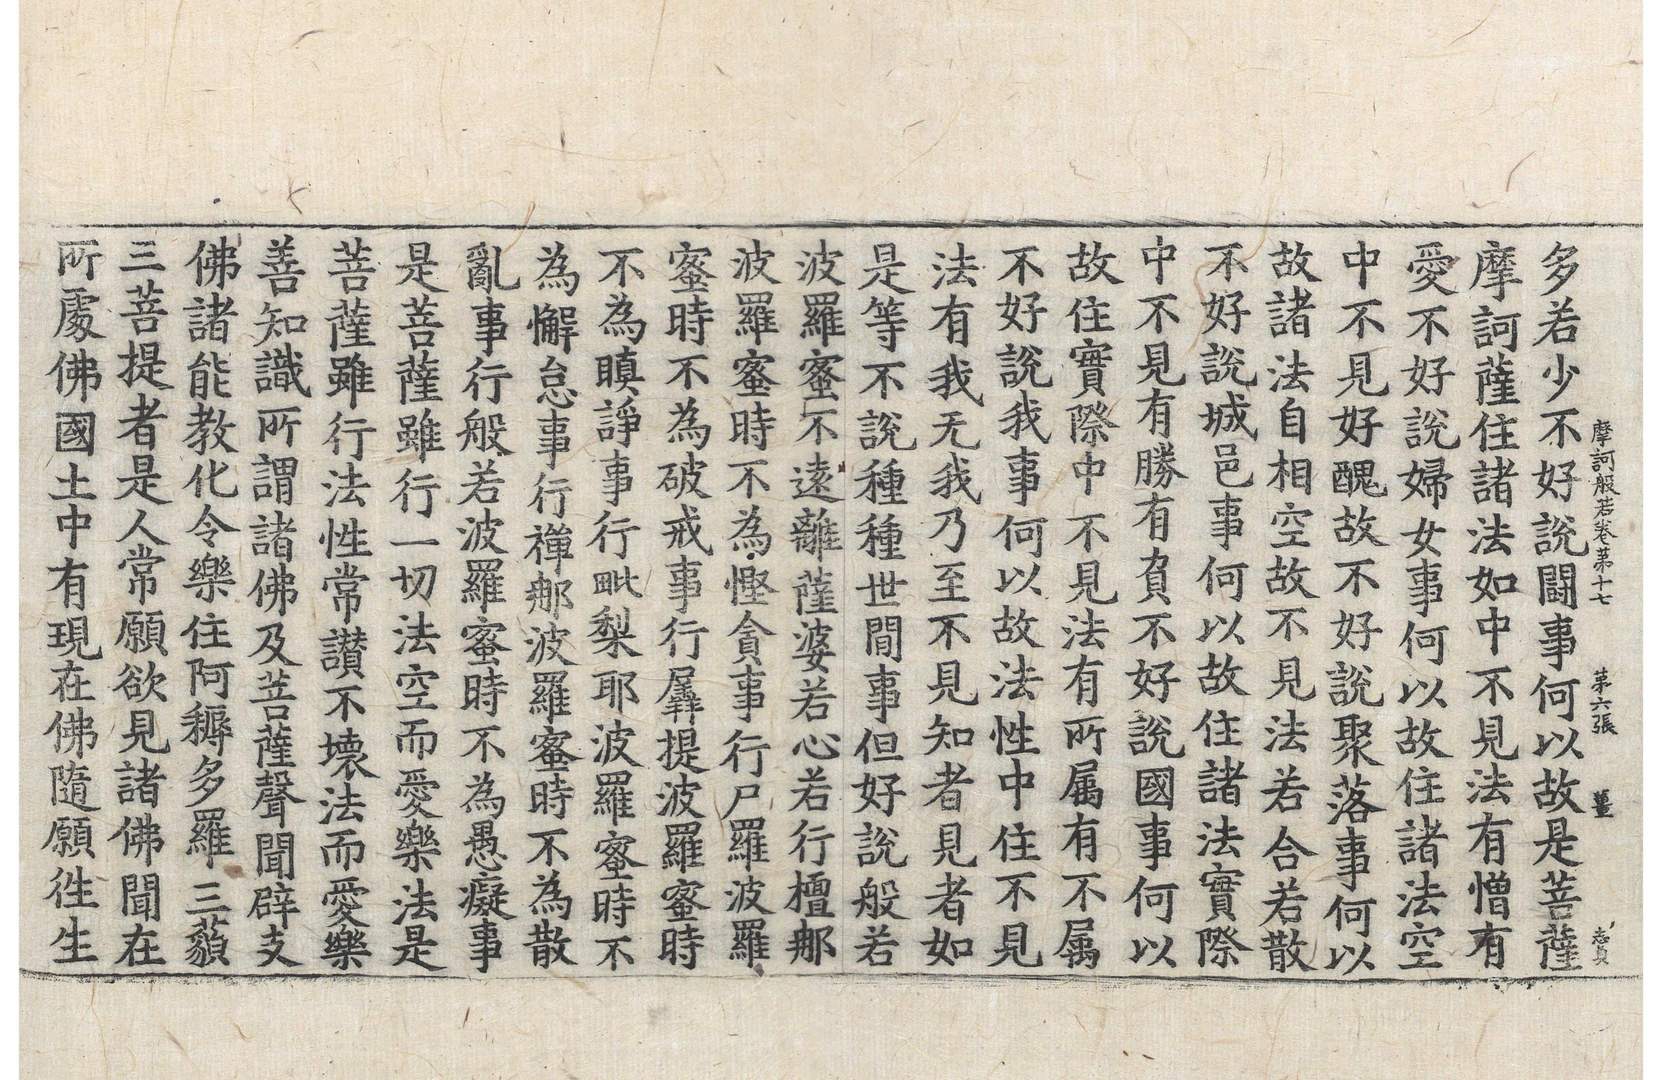 摩訶般若卷第十七 第六張 薑 志貞
多若少不好說鬪事何以故是菩薩
摩訶薩住諸法如中不見法有憎有
愛不好說婦女事何以故住諸法空
中不見好醜故不好說聚落事何以
故諸法自相空故不見法若合若散
不好說城邑事何以故住諸法實際
中不見有勝有負不好說國事何以
故住實際中不見法有所属有不属
不好說我事何以故法性中住不見
法有我无我乃至不見知者見者如
是等不說種種世間事但好說般若
波羅蜜不遠離薩婆若心若行檀那
波羅蜜時不為慳貪事行尸羅波羅
蜜時不為破戒事行羼提波羅蜜時
不為瞋諍事行毗梨耶波羅蜜時不
為懈怠事行禪那波羅蜜時不為散
亂事行般若波羅蜜時不為愚癡事
是菩薩雖行一切法空而愛樂法是
菩薩雖行法性常讃不壞法而愛樂
善知識所謂諸佛及菩薩聲聞辟支
佛諸能教化令樂住阿耨多羅三藐
三菩提者是人常願欲見諸佛聞在
所處佛國土中有現在佛隨願徃生